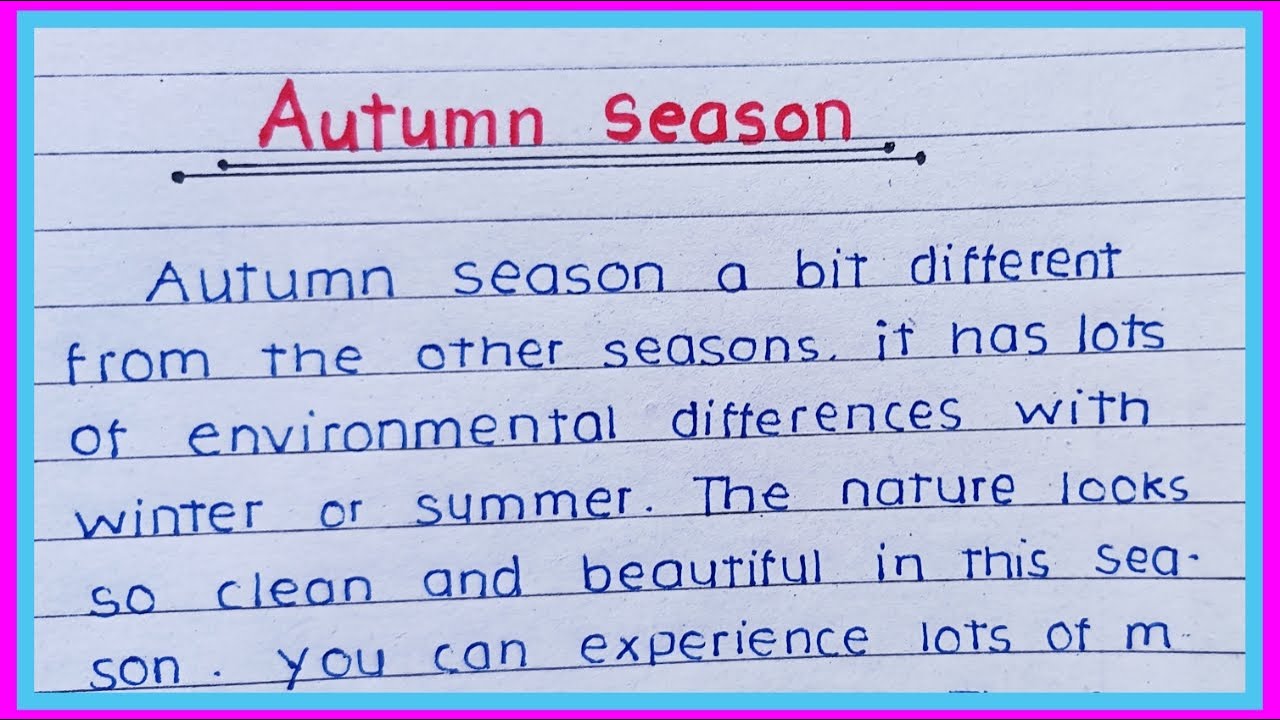 Autumn season
Autumn season a bit different
from the other seasons. it has lots
of environmental differences with
winter or summer. The nature looks
so clean and beautiful in this sea-
son. you can experience lots of m